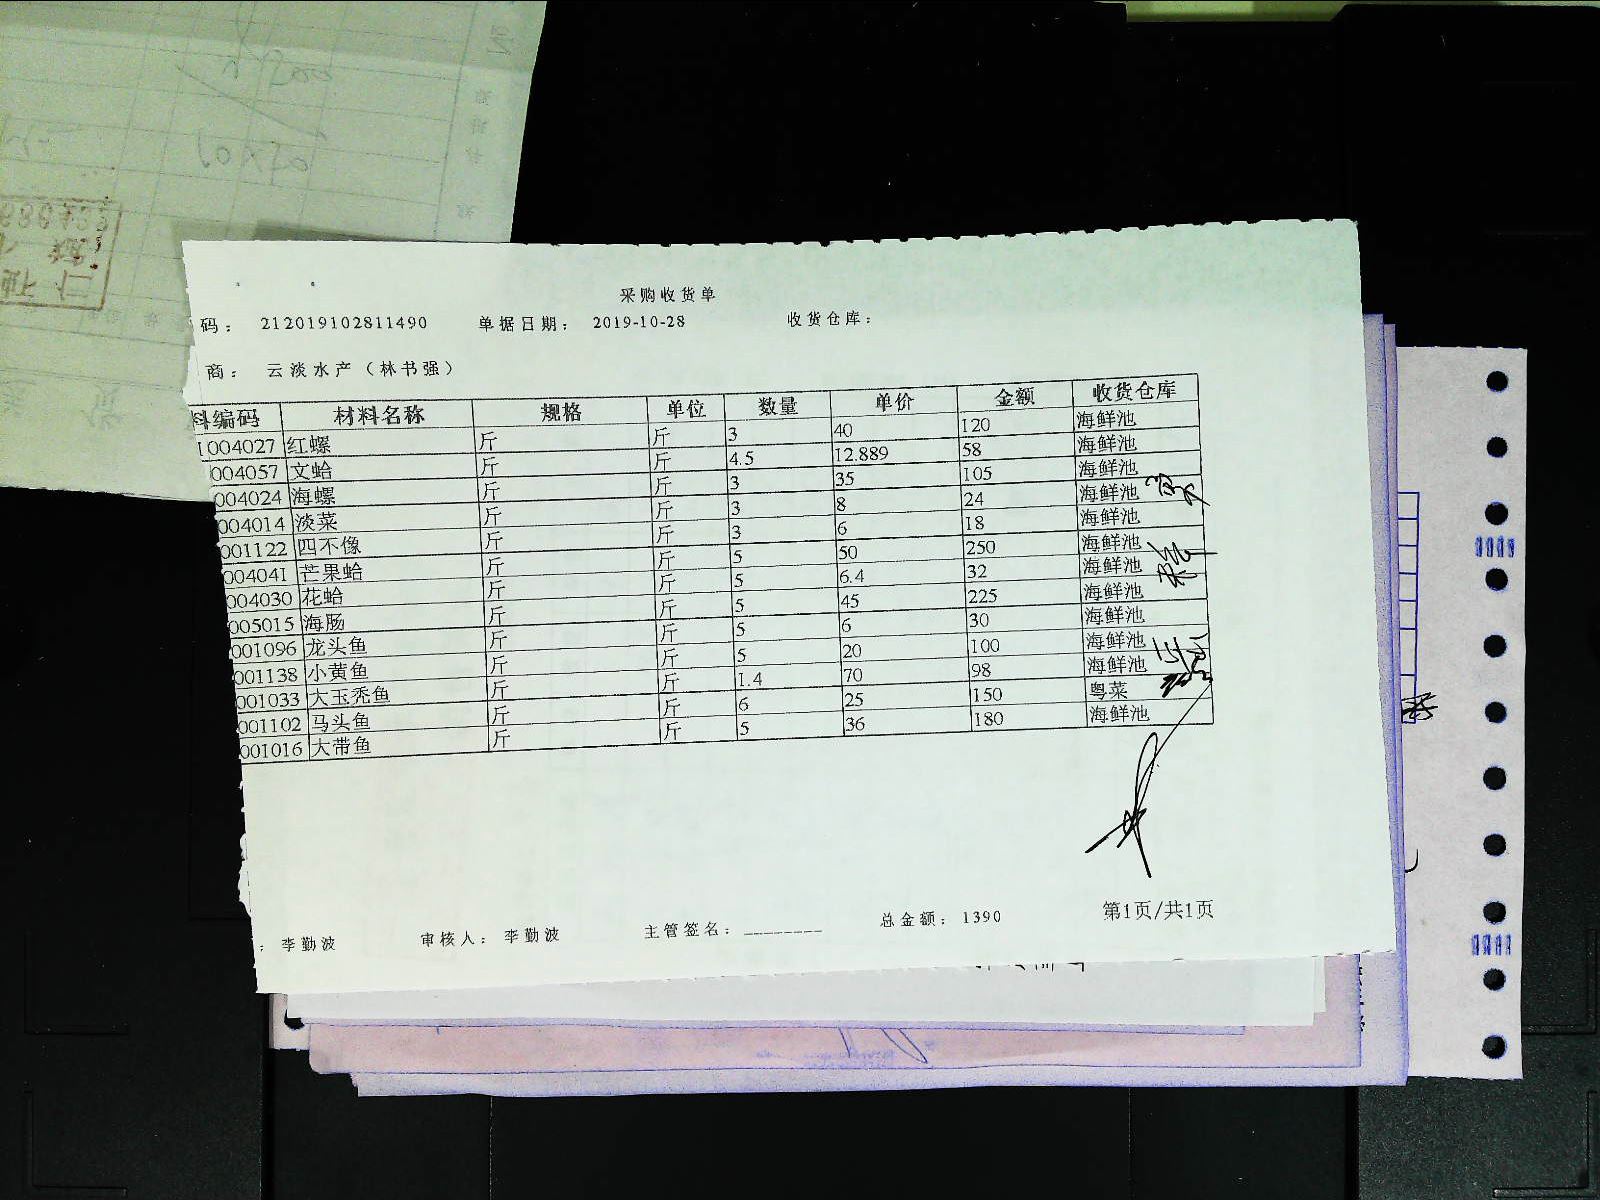 采购收货单
码： 212019102811490 单据日期： 2019-10-28 收货仓库：
商： 云淡水产（林书强）
料编码 材料名称 规格 单位 数量 单价 金额 收货仓库
1004027 红螺 斤 斤 3 40 120 海鲜池
004057 文蛤 斤 斤 4.5 12.889 58 海鲜池
004024 海螺 斤 斤 3 35 105 海鲜池
004014 淡菜 斤 斤 3 8 24 海鲜池
001122 四不像 斤 斤 3 6 18 海鲜池
004041 芒果蛤 斤 斤 5 50 250 海鲜池
004030 花蛤 斤 斤 5 6.4 32 海鲜池
005015 海肠 斤 斤 5 45 225 海鲜池
001096 龙头鱼 斤 斤 5 6 30 海鲜池
001138 小黄鱼 斤 斤 5 20 100 海鲜池
001033 大玉秃鱼 斤 斤 1.4 70 98 海鲜池
001102 马头鱼 斤 斤 6 25 150 粤菜
001016 大带鱼 斤 斤 5 36 180 海鲜池
： 李勤波 审核人： 李勤波 主管签名： ________ 总金额： 1390 第1页/共1页